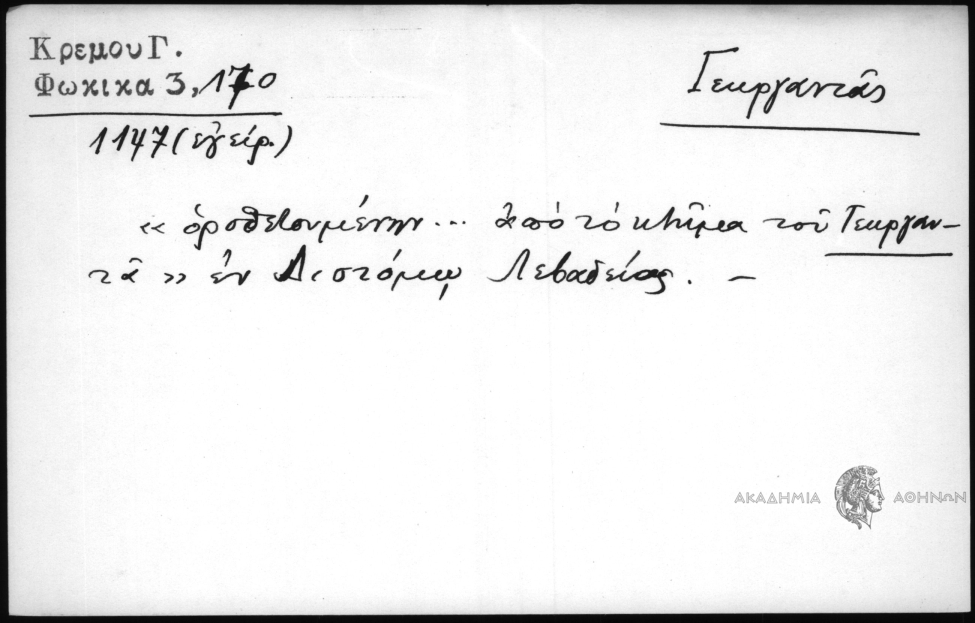 Κρεμου Γ.
Φωκικα 3, 170
1147 (ἐγείρ.)
Γεωργαντᾶς
« ὁροθετουμένην... ἀπὸ τὸ κτῆμα τοῦ Γεωργαν-
τᾶ » ἐν Διστόμῳ Λεβαδείας. –
ΑΚΑΔΗΜΙΑ ΑΘΗΝΩΝ